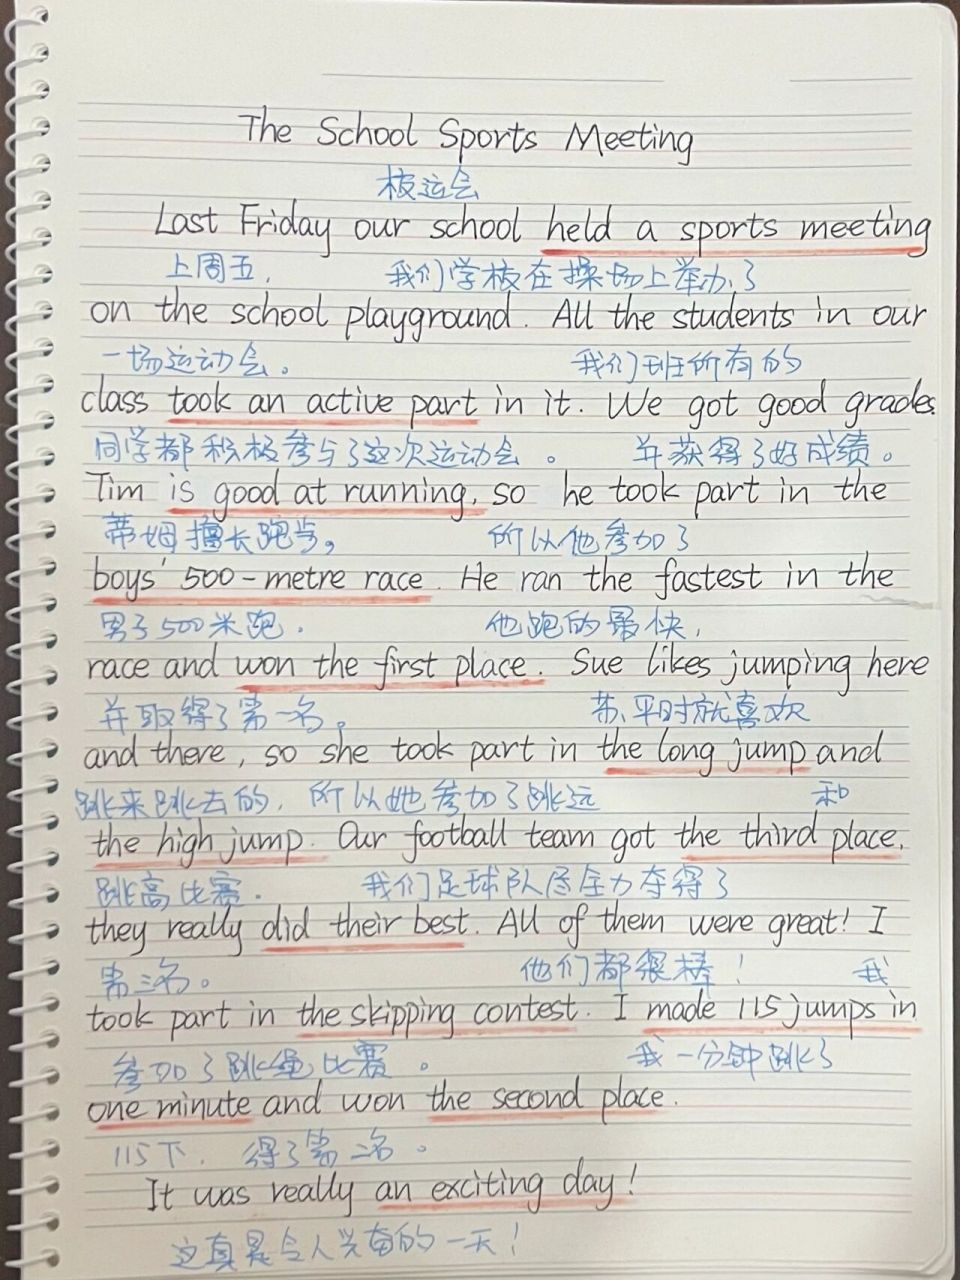 The School Sports Meeting
校运会
Last Friday our school held a sports meeting
上周五, 我们学校在操场上举办了
on the school playground. All the students in our
一场运动会。 我们班所有的
class took an active part in it. We got good grades.
同学都积极参与了这次运动会。 并获得了好成绩。
Tim is good at running, so he took part in the
蒂姆擅长跑步, 所以他参加了
boys' 500-metre race. He ran the fastest in the
男子500米跑. 他跑的最快,
race and won the first place. Sue likes jumping here
并取得了第一名。 苏平时就喜欢
and there, so she took part in the long jump and
跳来跳去的, 所以她参加了跳远 和
the high jump. Our football team got the third place,
跳高比赛. 我们足球队尽全力夺得了
they really did their best. All of them were great! I
第三名。 他们都很棒! 我
took part in the skipping contest. I made 115 jumps in
参加了跳绳比赛。 我一分钟跳了
one minute and won the second place.
115下. 得了第二名。
It was really an exciting day!
这真是令人兴奋的一天!